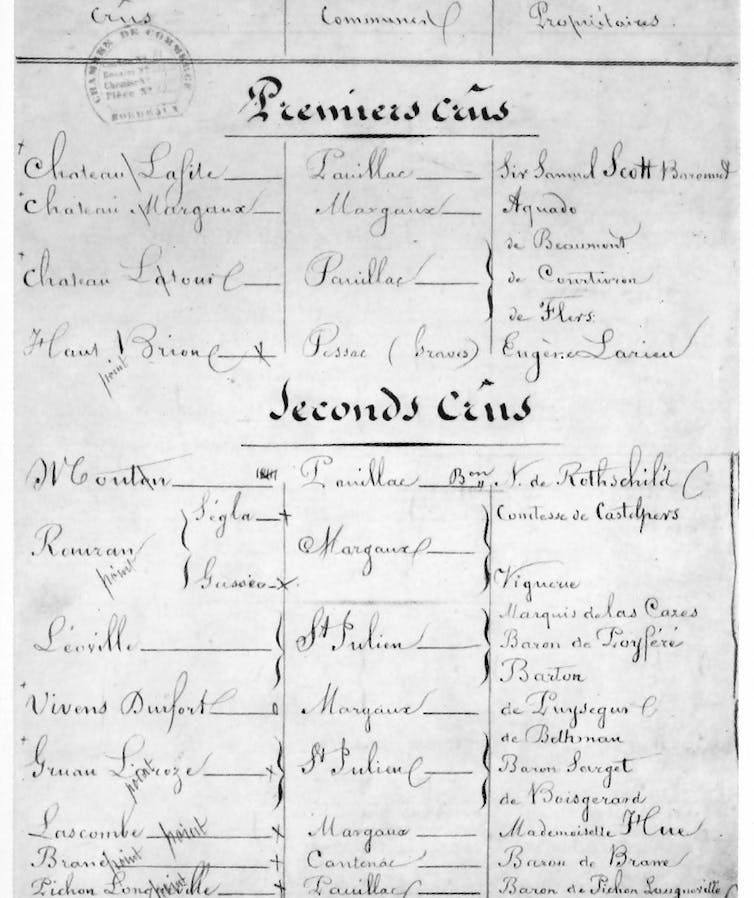 Crûs Communes Propriétaires
CHAMBRE DE COMMERCE
BORDEAUX
Premiers Crûs
Chateau Lafite Pauillac Sir Samuel Scott Baronnet
Chateau Margaux Margaux Aguado
de Beaumont
Chateau Latour Pauillac de Courtivron
de Flers
Haut Brion Pessac (Graves) Eugène Larieu
point
Seconds Crûs
Mouton Pauillac Bon N. de Rothschild
Ségla Comtesse de Castelpers
Rauzan Margaux
point Gassies Viguerie
Marquis de las Cazes
Léoville St Julien Baron de Poyféré
Barton
Vivens Durfort Margaux de Puysegur
de Bethman
Gruau Laroze St Julien Baron Sarget
point
de Boisgerard
Lascombe point Margaux Mademoiselle Hue
Brane point Cantenac Baron de Brane
Pichon Longueville point Pauillac Baron de Pichon Longueville